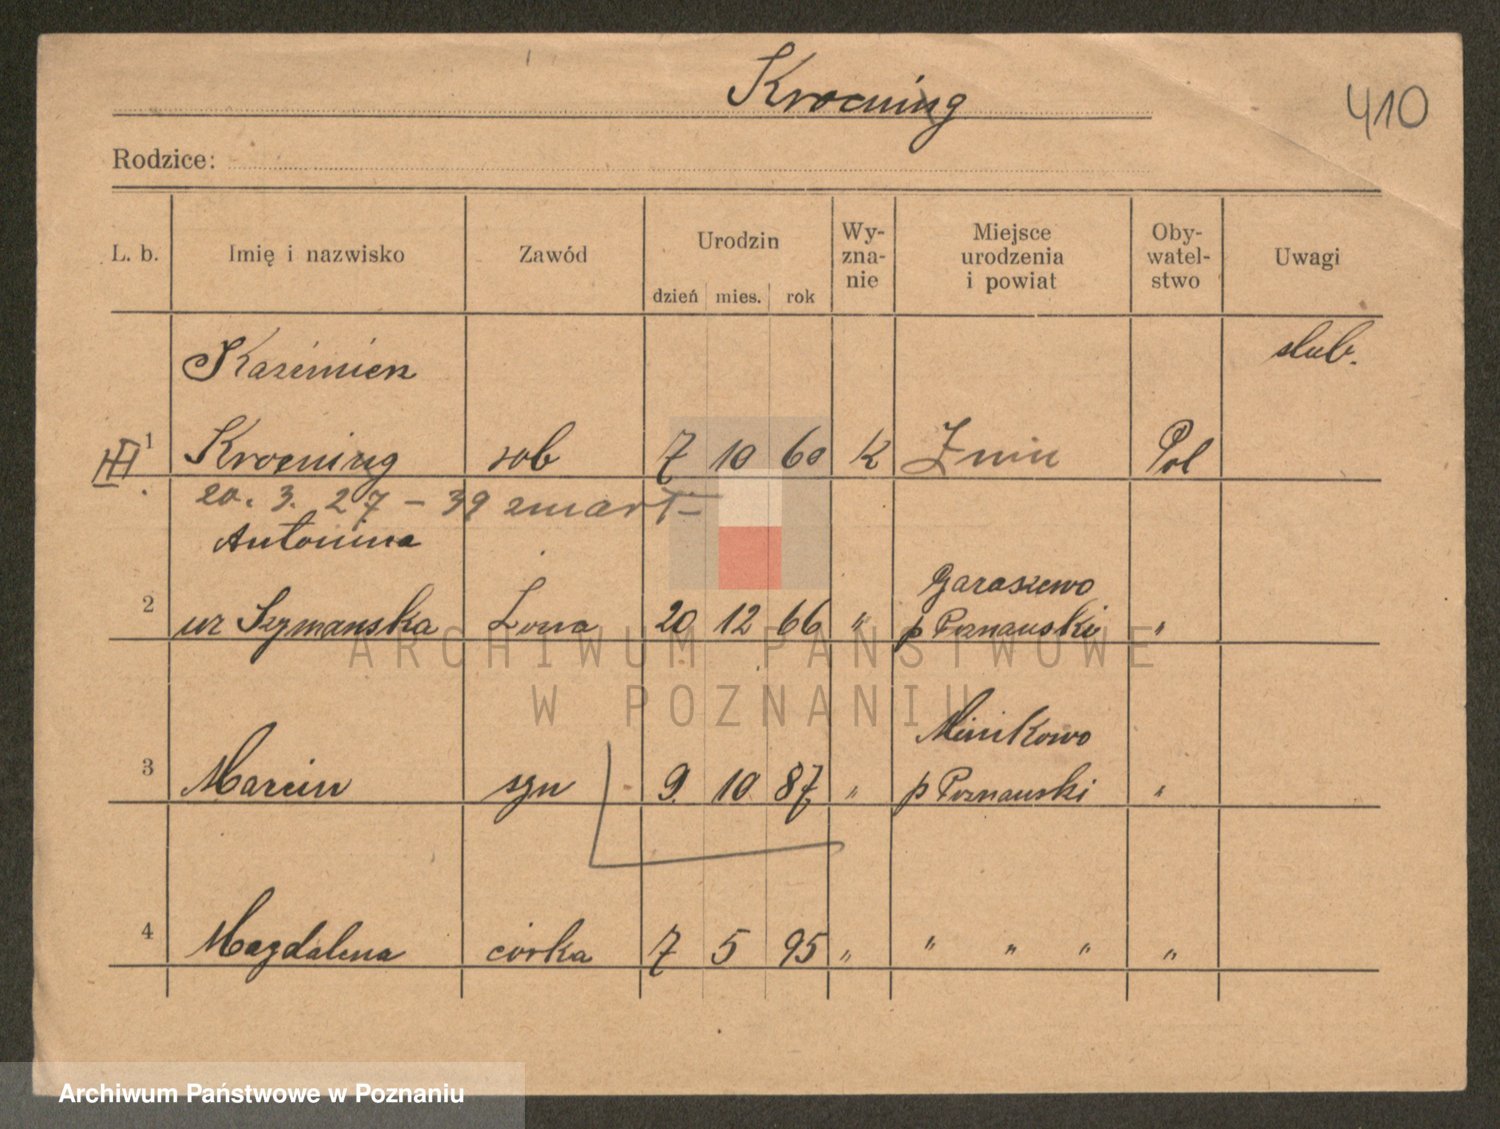 Krocning
410
Rodzice:
L. b. Imię i nazwisko Zawód Urodzin dzień mies. rok Wy-zna-nie Miejsce urodzenia i powiat Oby-watel-stwo Uwagi
Kazimierz ślub.
III 1 Krocning rob 7 10 60 K Żnin Pol
20. 3. 27 – 39 zmarł –
Antonina
Garaszewo
2 ur Szymanska żona 20 12 66 " p Poznański "
ARCHIWUM PAŃSTWOWE
W POZNANIU
Minikowo
3 Marcin syn 9. 10 87 " p Poznański "
4 Magdalena córka 7 5 95 " " " " "
Archiwum Państwowe w Poznaniu